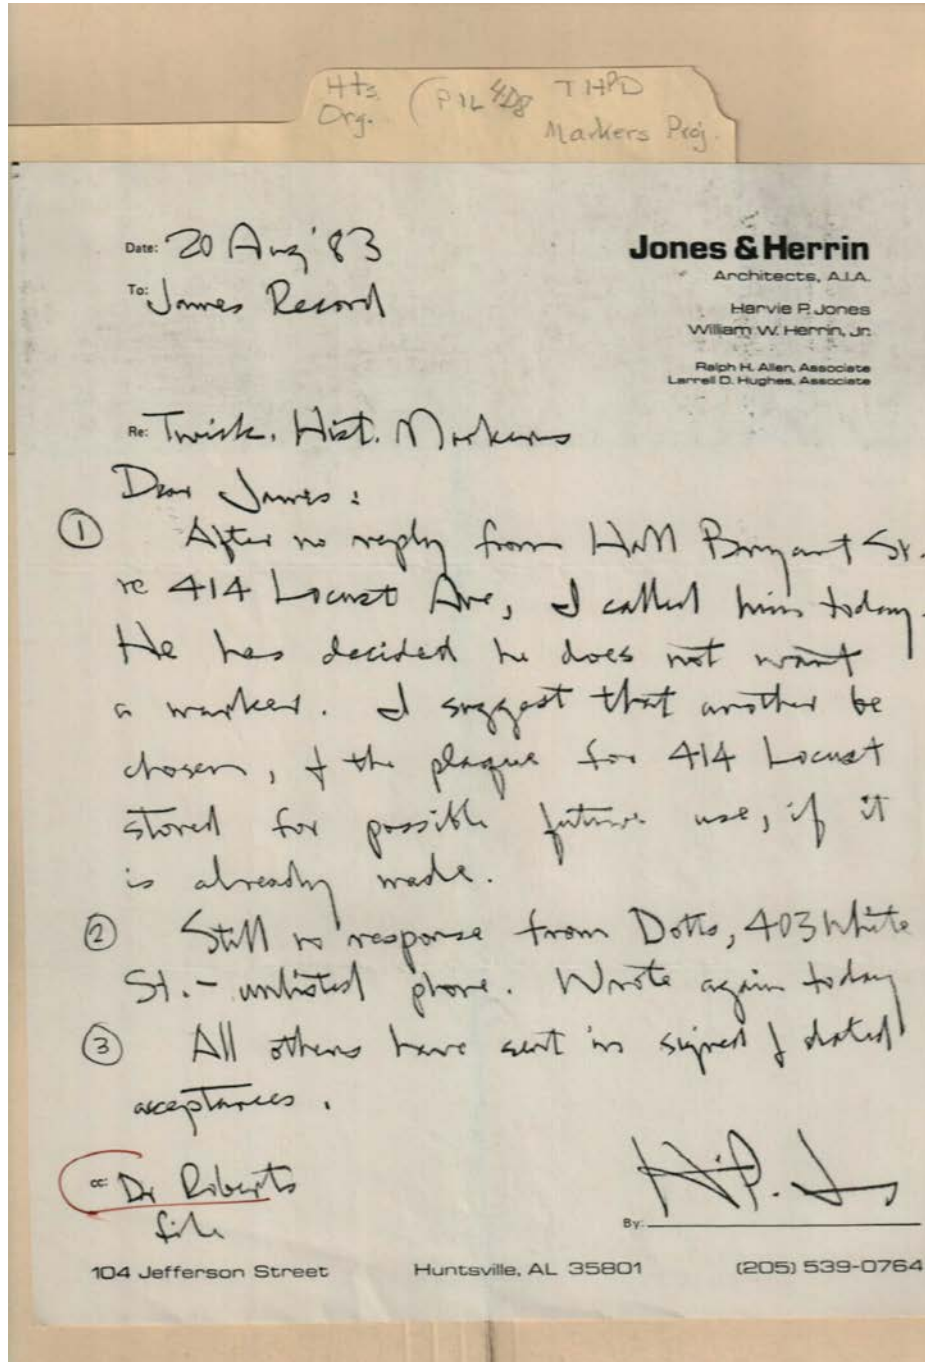 Hts. Org. (PIL 4D8 THPD
Markers Proj.
Date: 20 Aug '83
To: James Record
Jones & Herrin
Architects, A.I.A.
Harvie P. Jones
William W. Herrin, Jr.
Ralph H. Allen, Associate
Larrell D. Hughes, Associate
Re: Twick. Hist. Markers
Dear James:
① After no reply from Hall Bryant Sr.
re 414 Locust Ave, I called him today.
He has decided he does not want
a marker. I suggest that another be
chosen, & the plaque for 414 Locust
stored for possible future use, if it
is already made.
② Still no response from Dotts, 403 White
St. - unlisted phone. Wrote again today
③ All others have sent in signed & dated
acceptances.
cc: Dr Roberts
file
By: H.P. J
104 Jefferson Street Huntsville, AL 35801 (205) 539-0764